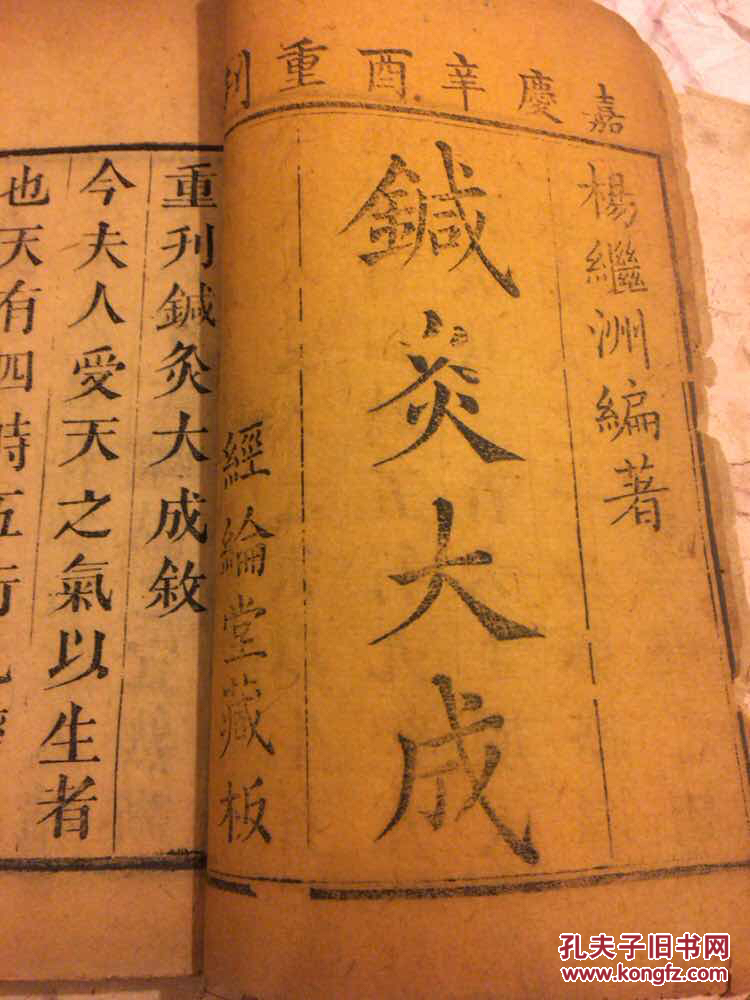 嘉慶辛酉重刊
楊繼洲編著
鍼灸大成
經綸堂藏板
重刊鍼灸大成敘
今夫人受天之氣以生者
也天有四時五行
孔夫子旧书网
www.kongfz.com